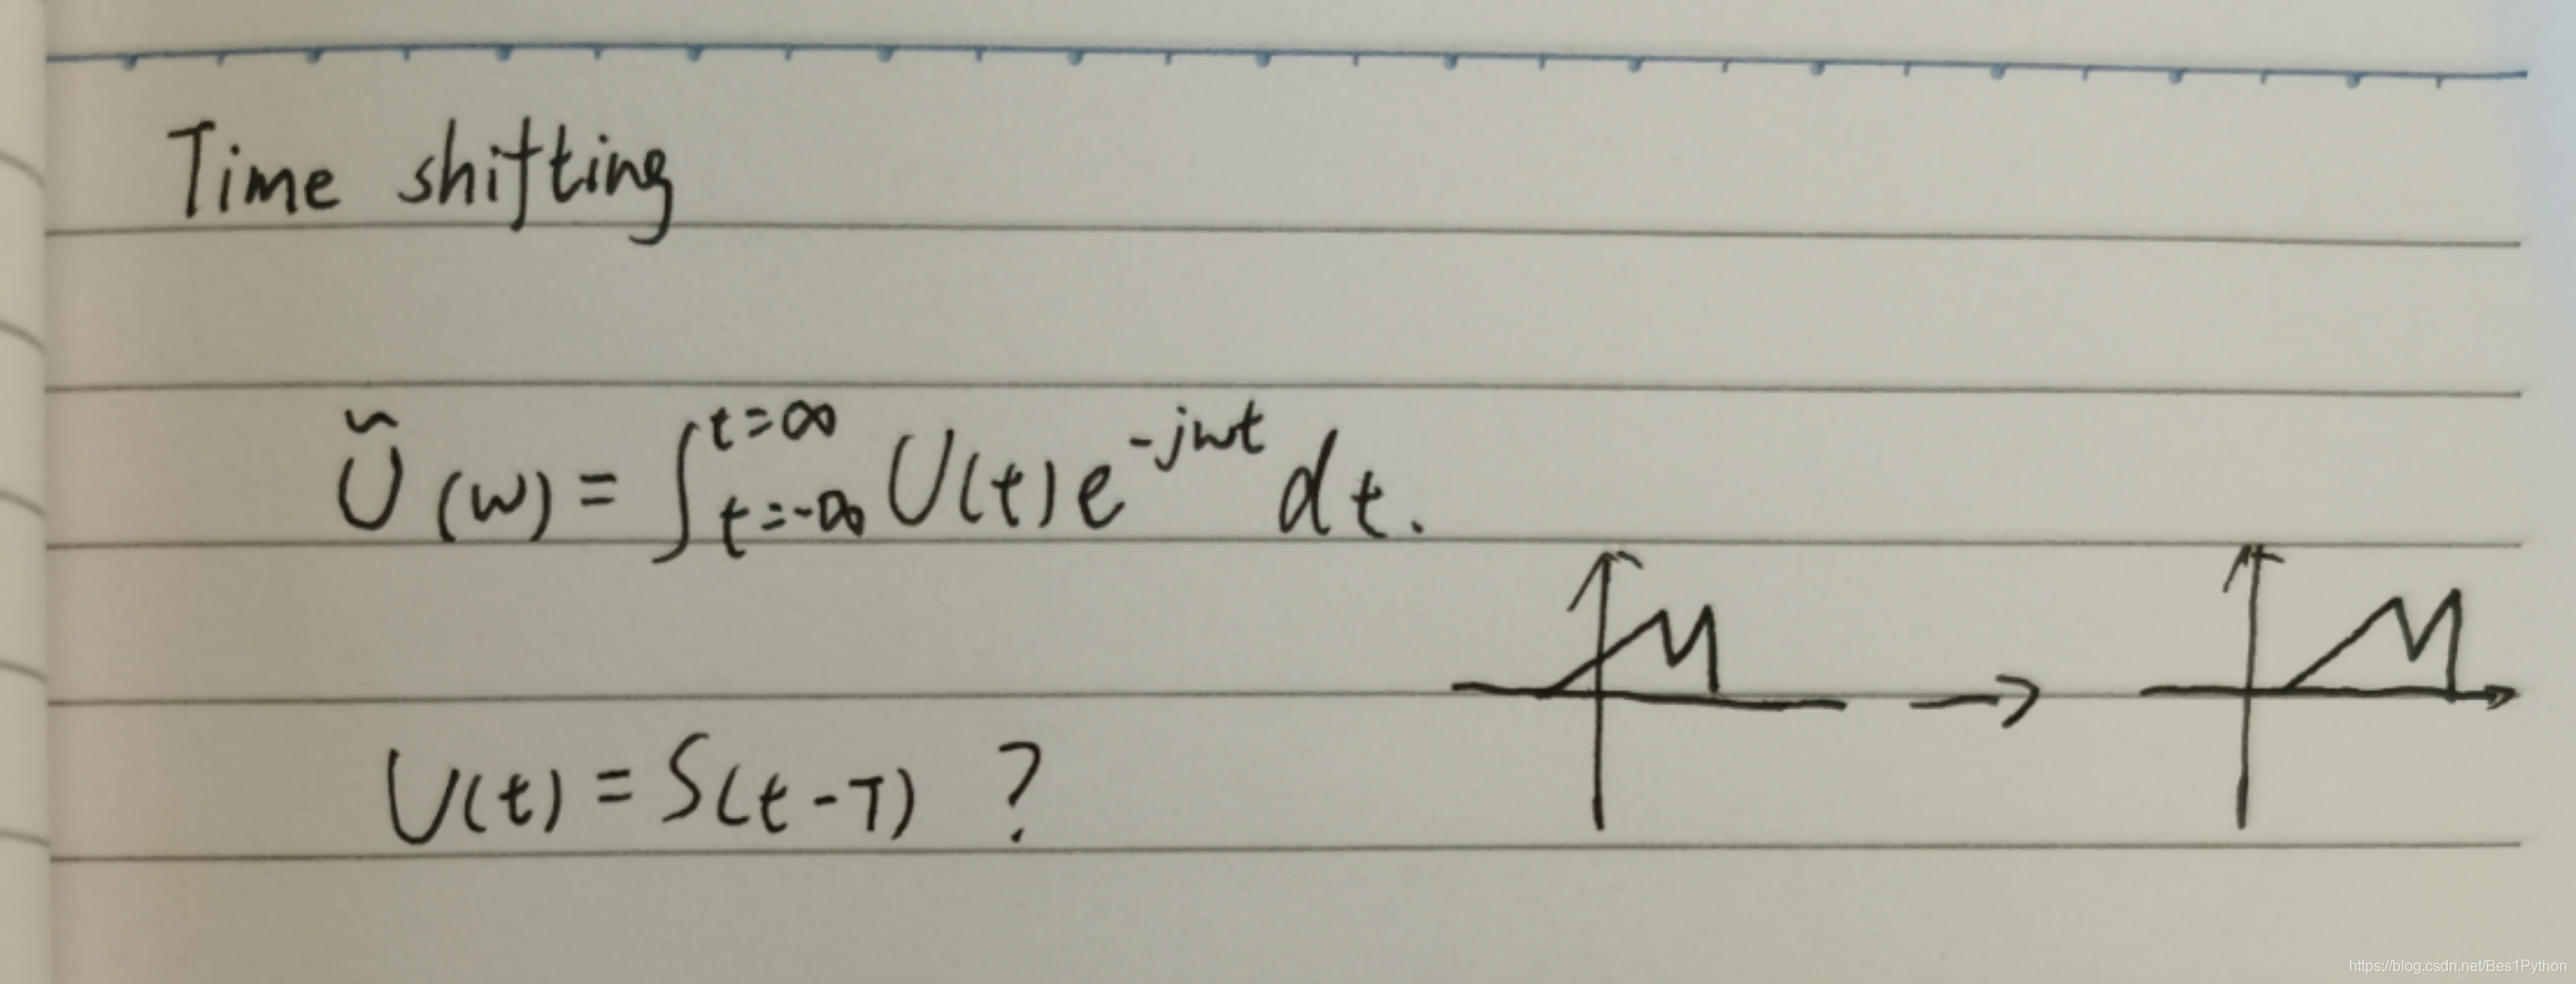 Time shifting
Ũ(w) = ∫_{t=-∞}^{t=∞} U(t) e^{-jwt} dt.
U(t) = S(t-T) ?
https://blog.csdn.net/Bes1Python